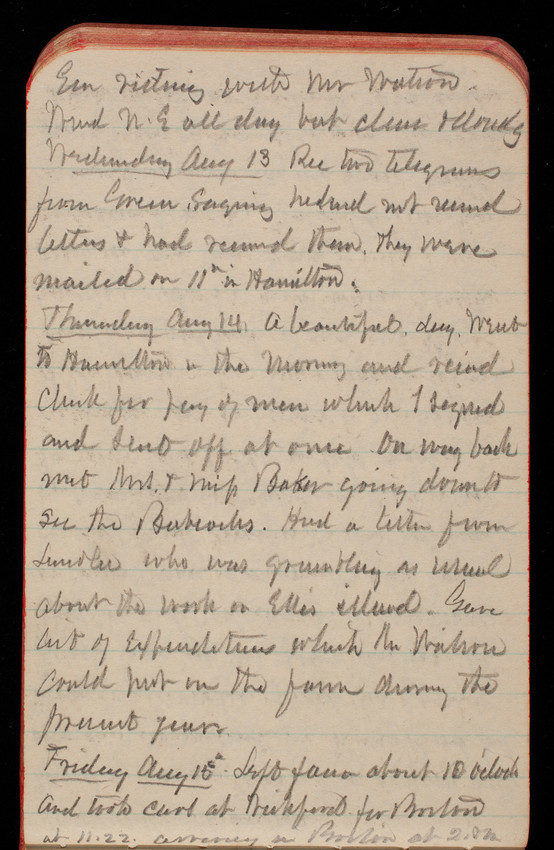 with Mr Watson.
Wind N.E all day but clear & cloudy
Wednesday Aug 13 Rec two telegrams
from Green saying he had not received
letters & had received them. They were
mailed on 11th in Hamilton.
Thursday Aug 14. A beautiful day. Went
to Hamilton in the morning and recived
check for pay of men which I signed
and sent off at once On way back
met Mrs. & Miss Baker going down to
see the Babcocks. Had a letter from
who was grumbling as usual
about the work on Ellis island. Gave
list of Expenditures which Mr Watson
could put on the farm during the
present year.
Friday Aug 15th Left farm about 10 o'clock
and took cars at Wickford for Boston
at 11.22. arriving in Boston at